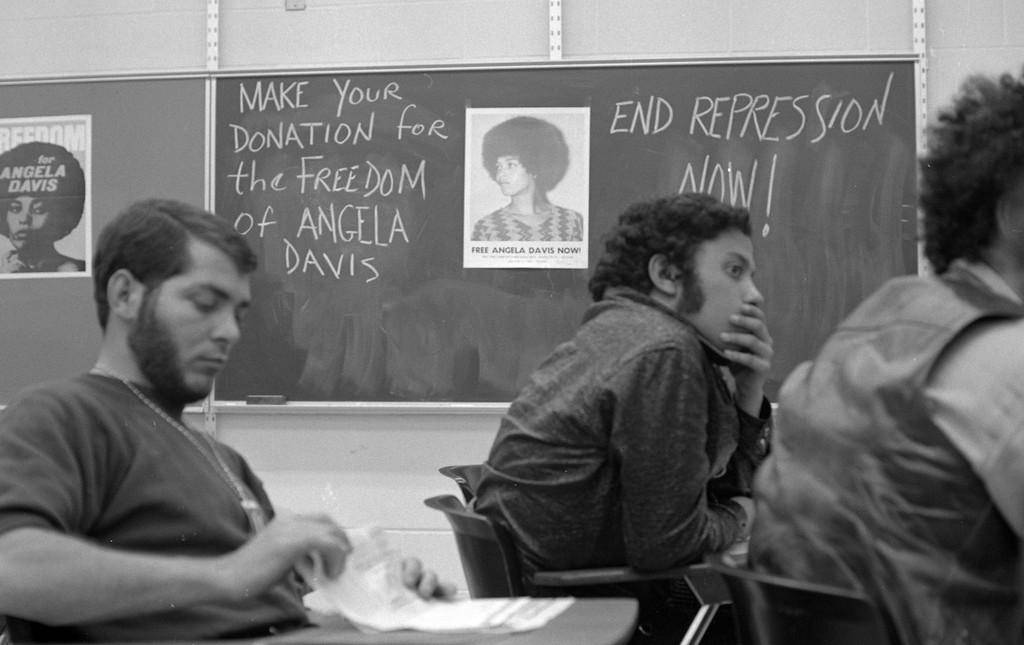 FREEDOM
for
ANGELA
DAVIS
MAKE YOUR
DONATION for
the FREEDOM
of ANGELA
DAVIS
FREE ANGELA DAVIS NOW!
END REPRESSION
NOW!